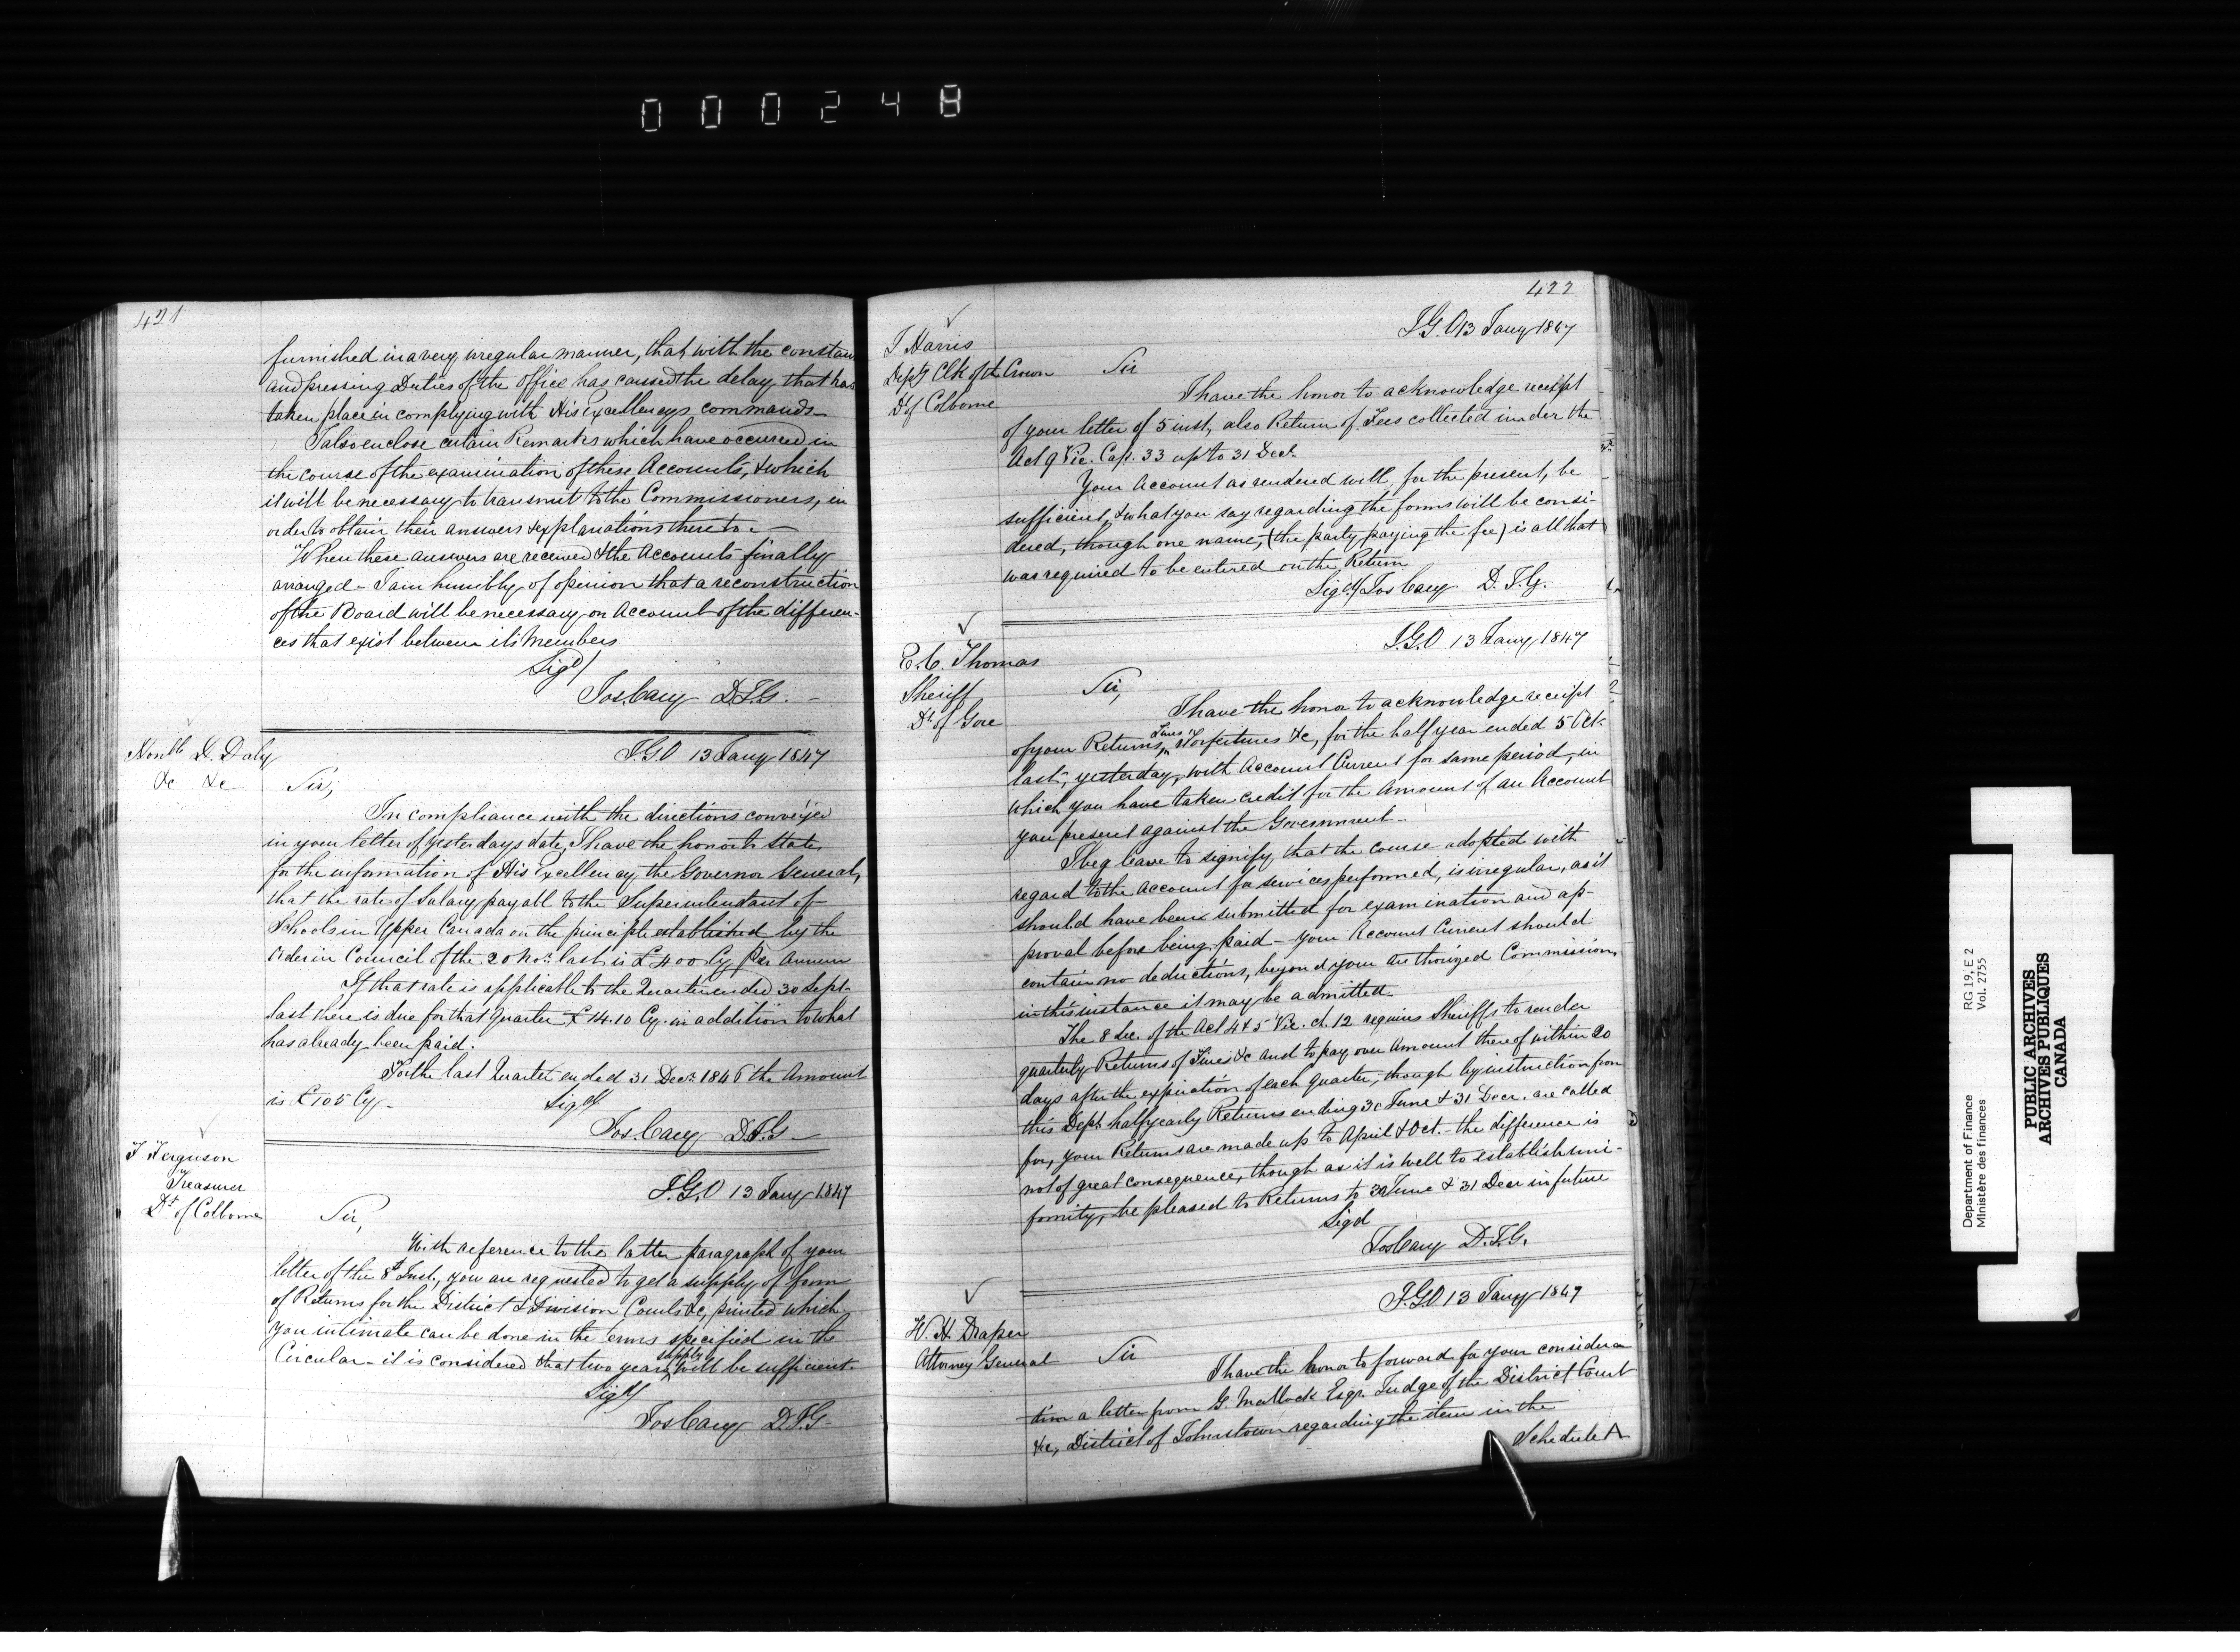 000248
421
furnished in a very irregular manner, that with the constan
and pressing Duties of the Office has caused the delay that has
taken place in complying with His Excellencys commands
I also enclose certain Remarks which have occurred in
the course of the examination of these Accounts, & which
it will be necessary to transmit to the Commissioners, in
order to obtain their answers & explanations thereto -
When these answers are received & the Accounts finally
arranged - I am humbly of opinion that a reconstruction
of the Board will be necessary on Account of the differen-
ces that exist between its Members
Sigd/
Jos. Cary D.I.G. -
Honble D. Daly
&c &c
I.G.O 13 Jany 1847
Sir,
In compliance with the directions conveyed
in your letter of yesterdays date, I have the honor to state,
for the information of His Excellency the Governor General,
that the rate of Salary payabl to the Superintendant of
Schools in Upper Canada on the principle established by the
Order in Council of the 20 Nov. last is £400 Cy Per Annum
If that rate is applicable to the Quarter ended 30 Sept.
last there is due for that Quarter £14.10 Cy. in addition to what
has already been paid.
For the last Quarter ended 31 Decr. 1846 the Amount
is £105 Cy.
Sigd/
Jos. Cary D.I.G -
J Ferguson
Treasurer
Dt of Colborne
I.G.O 13 Jany 1847
Sir,
With reference to the latter paragraph of your
letter of the 8t Inst., you are requested to get a supply of from
of Returns for the District & Division Courts &c, printed which
you intimate can be done in the terms specified in the
Circular - it is considered that two years supply will be sufficient
Sigd/
Jos Cary D.I.G
422
J. Harris
Depy Clk of the Crown
Dt of Colborne
I.G.O 13 Jany 1847
Sir
I have the honor to acknowledge receipt
of your letter of 5 inst, also Return of Fees collected under the
Act 9 Vic. Cap. 33 up to 31 Decr.
Your Account as rendered will, for the present, be
sufficient, & what you say regarding the forms will be consi-
dered, though one name, (the party paying the fee) is all that
was required to be entered on the Return
Sigd/ Jos Cary D.I.G.
E. C. Thomas
Sheriff
Dt. of Gore
I.G.O 13 Jany 1847
Sir,
I have the honor to acknowledge receipt
of your Returns, Fines Forfeitures &c, for the half year ended 5 Oct.
last, yesterday, with Account Current for same period, in
which you have taken credit for the Amount of an Account
you present against the Government -
I beg leave to signify, that the course adopted with
regard to the Account for services performed, is irregular, as it
should have been submitted for examination and ap-
proval before being paid - your Account Current should
contain no deductions, beyond your authorized Commission,
in this instance it may be admitted.
The 8 Sec. of the Act 4 & 5 Vic. ch. 12 requires Sheriffs to render
quarterly Returns of Fines &c and to pay over Amount thereof within 20
days after the expiration of each quarter, though by instruction from
this Dept. half yearly Returns ending 30 June & 31 Decr. are called
for, your Returns are made up to April & Oct. - the difference is
not of great consequence, though as it is well to establish uni-
formity, be pleased to Returns to 30 June & 31 Decr in future
Sigd
Jos Cary D.I.G.
W. H. Draper
Attorney General
I.G.O 13 Jany 1847
Sir
I have the honor to forward for your considera
tion a letter from G. Malloch Esqr. Judge of the District Court
&c, District of Johnstown regarding the item in the
Schedule A
Department of Finance RG 19, E 2
Ministère des finances Vol. 2755
PUBLIC ARCHIVES
ARCHIVES PUBLIQUES
CANADA